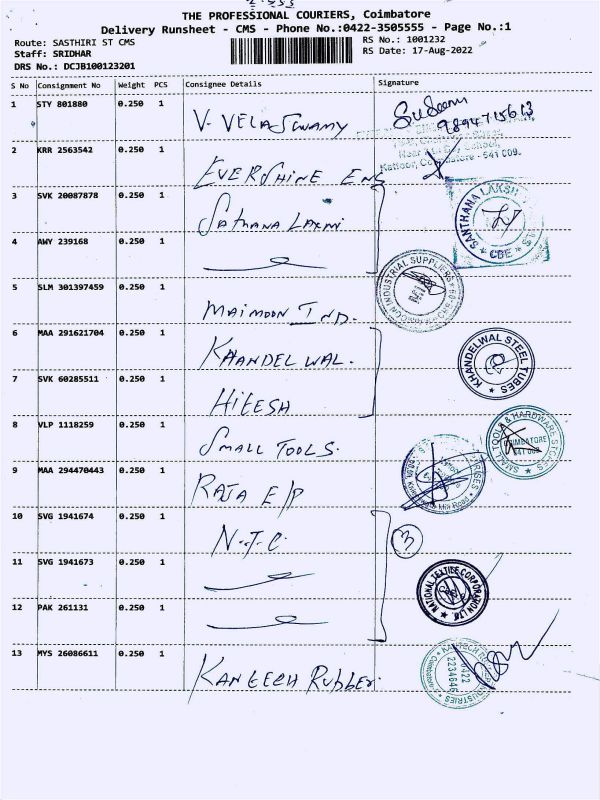 THE PROFESSIONAL COURIERS, Coimbatore
Delivery Runsheet - CMS - Phone No.:0422-3505555 - Page No.:1
Route: SASTHIRI ST CMS
RS No.: 1001232
Staff: SRIDHAR
RS Date: 17-Aug-2022
DRS No.: DCJB100123201
S No Consignment No Weight PCS Consignee Details Signature
1 STY 801880 0.250 1 V. VELASWAMY
9894715613
2 KRR 2563542 0.250 1 EVERSHINE ENG
Kattoor, Coimbatore - 641 009.
3 SVK 20087878 0.250 1 SATHANA LAXMI
SANTHANA LAKSH
CBE
4 AWY 239168 0.250 1
INDUSTRIAL SUPPLIERS
5 SLM 301397459 0.250 1 MAIMOON IND.
6 MAA 291621704 0.250 1 KHANDELWAL.
KHANDELWAL STEEL TUBES
7 SVK 60285511 0.250 1 HITESH
8 VLP 1118259 0.250 1 SMALL TOOLS.
SMALL TOOLS & HARDWARE STORES
COIMBATORE
641 009
9 MAA 294470443 0.250 1 RAJA E/P
Mill Road
10 SVG 1941674 0.250 1 N.T.C. 3
11 SVG 1941673 0.250 1
NATIONAL TEXTILE CORPORATION LTD.
12 PAK 261131 0.250 1
13 MYS 26086611 0.250 1 KANTECH RUBBER.
0422
2234646
INDUSTRIES
Coimbatore